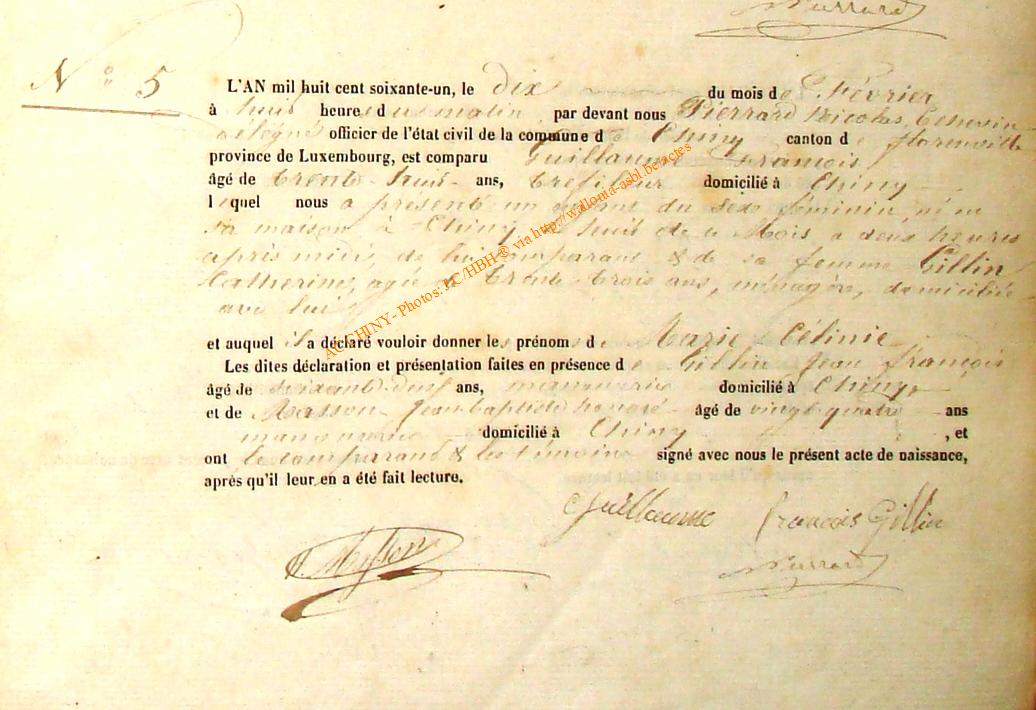 Pierrard
N° 5
L'AN mil huit cent soixante-un, le dix du mois de Février
à huit heures du matin, par devant nous Pierrard Nicolas, Echevin
délégué officier de l'état civil de la commune de Chiny canton de florenville
province de Luxembourg, est comparu Guillaume François
âgé de trente-huit ans, Trefileur domicilié à Chiny
lequel nous a présenté un enfant du sexe féminin, né en
sa maison à Chiny le huit de ce Mois a deux heures
après midi, de lui comparant & de sa femme Gillin
Catherine, agée de trente trois ans, ménagère, domiciliée
avec lui
et auquel il a déclaré vouloir donner les prénom d Marie Célinie
Les dites déclaration et présentation faites en présence de Gillin Jean françois
âgé de ans, manouvrier domicilié à Chiny
et de Masson Jean baptiste honoré âgé de vingt quatre ans
manouvrier domicilié à Chiny , et
ont le comparant & les témoins signé avec nous le présent acte de naissance,
après qu'il leur en a été fait lecture.
Guillaume françois Gillin
Pierrard
AC CHINY - Photos: FC/HBH ® via http://wallonia-asbl.be/actes